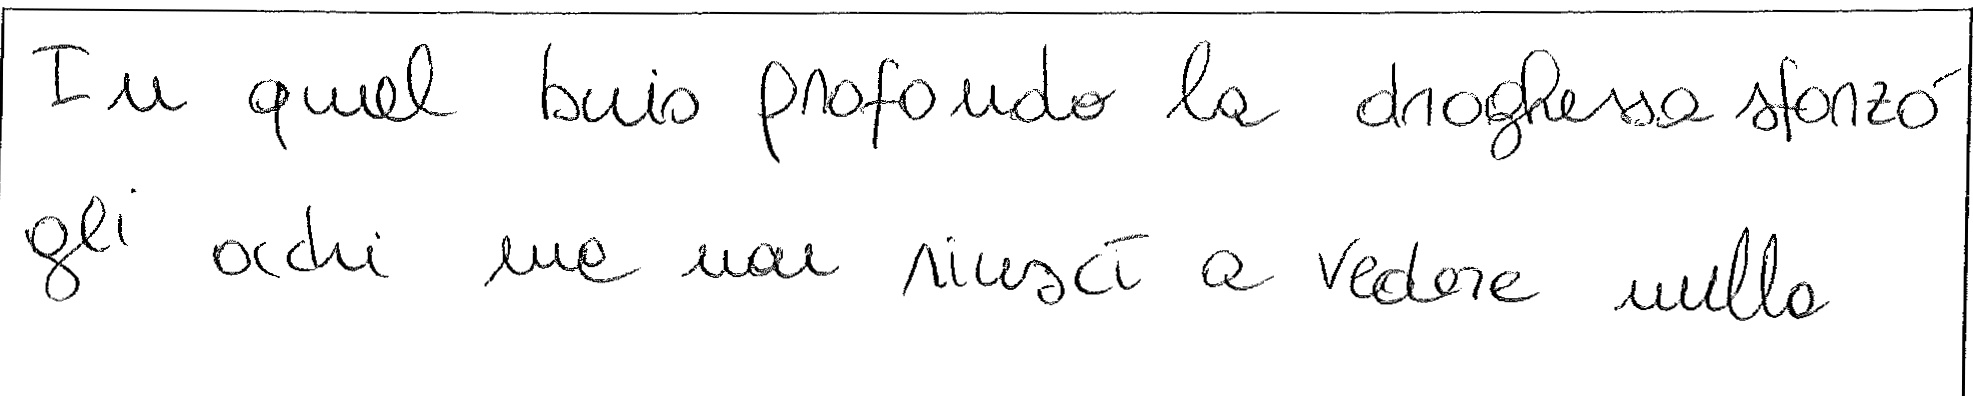 In quel buio profondo la droghessa sforzò
gli occhi ma non riuscì a vedere nulla